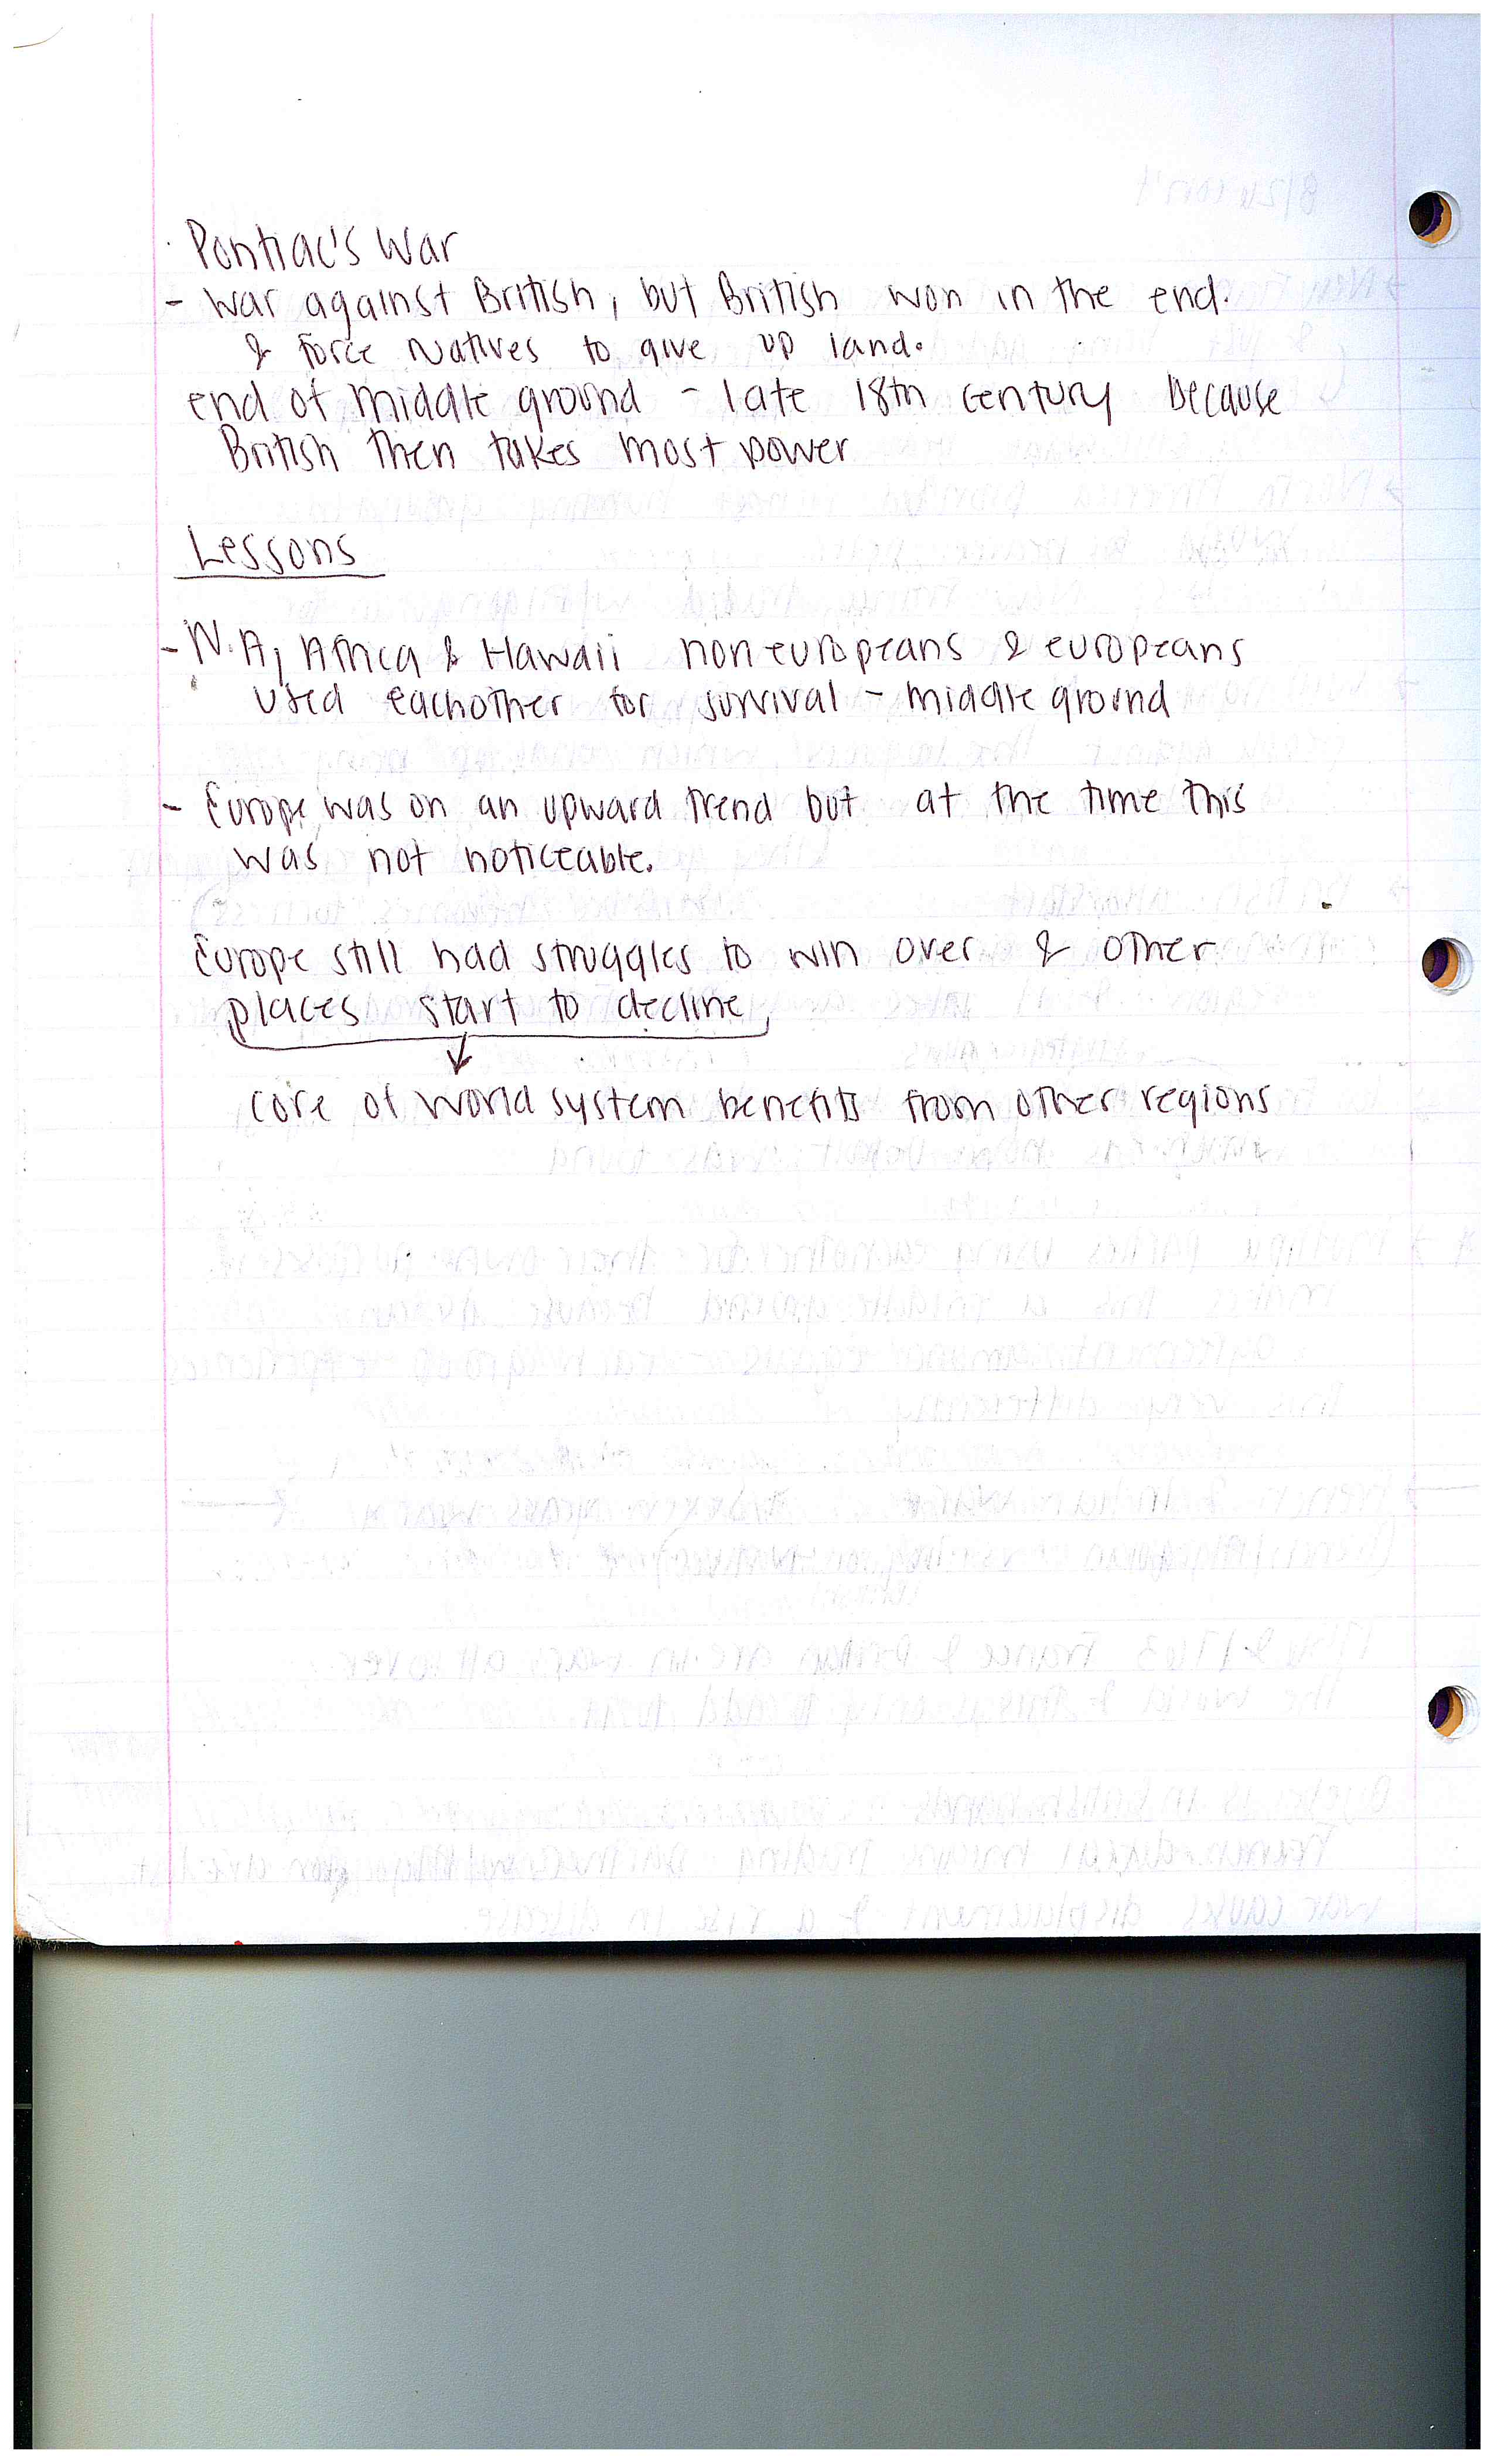 Pontiac's War
- War against British, but British won in the end.
& force Natives to give up land.
end of middle ground - late 18th century because
British then takes most power
Lessons
- N.A, Africa & Hawaii noneuropeans & europeans
used eachother for survival - middle ground
- Europe was on an upward trend but at the time this
was not noticeable.
Europe still had struggles to win over & other
places start to decline
core of world system benefits from other regions